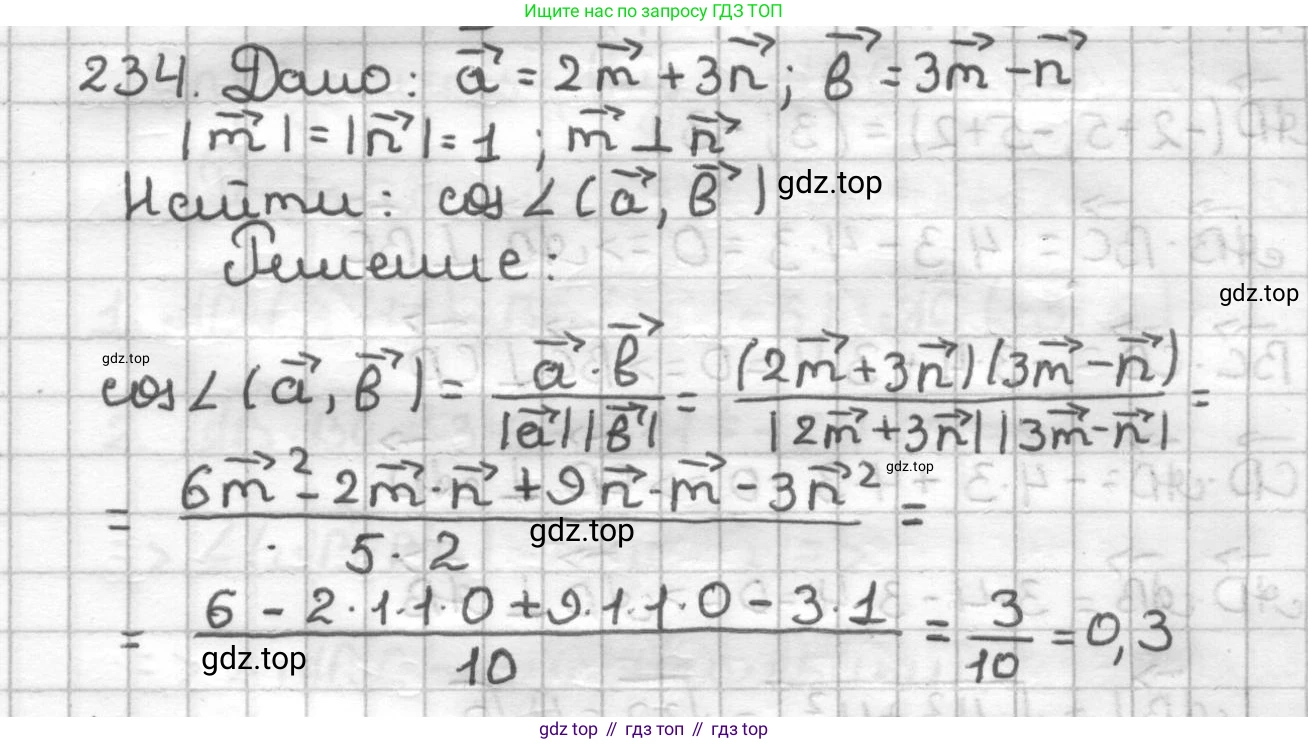 Ищите нас по запросу ГДЗ ТОП
234. Дано: a⃗ = 2m⃗ + 3n⃗; b⃗ = 3m⃗ - n⃗
|m⃗| = |n⃗| = 1 ; m⃗ ⊥ n⃗
Найти: cos∠(a⃗, b⃗) gdz.top
Решение:
gdz.top
gdz.top
cos∠(a⃗, b⃗) = a⃗·b⃗ / |a⃗||b⃗| = (2m⃗+3n⃗)(3m⃗-n⃗) / |2m⃗+3n⃗||3m⃗-n⃗| =
gdz.top
= 6m⃗² - 2m⃗·n⃗ + 9n⃗·m⃗ - 3n⃗² / 5·2 =
gdz.top
= 6 - 2·1·1·0 + 9·1·1·0 - 3·1 / 10 = 3/10 = 0,3
gdz.top
gdz top // гдз топ // гдз top